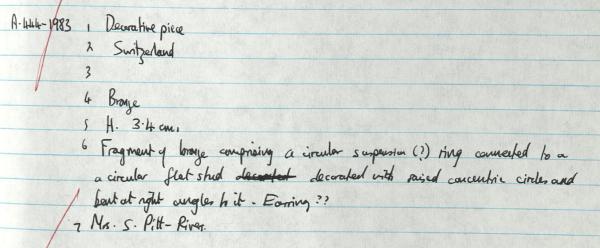 A.444-1983 1 Decorative piece
2 Switzerland
3
4 Bronze
5 H. 3.4 cm.
6 Fragment of bronze comprising a circular suspension (?) ring connected to a
a circular flat stud decorated decorated with raised concentric circles and
bent at right angles to it - Earring??
7 Mrs. S. Pitt-Rivers.